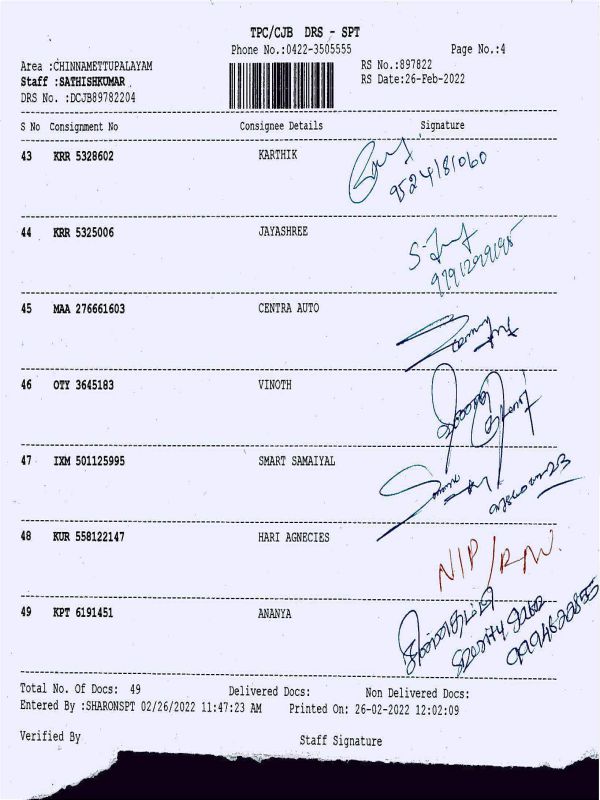 TPC/CJB DRS - SPT
Phone No.:0422-3505555 Page No.:4
Area :CHINNAMETTUPALAYAM RS No.:897822
Staff :SATHISHKUMAR RS Date:26-Feb-2022
DRS No. :DCJB89782204
S No Consignment No Consignee Details Signature
43 KRR 5328602 KARTHIK
9524181060
44 KRR 5325006 JAYASHREE
45 MAA 276661603 CENTRA AUTO
46 OTY 3645183 VINOTH
47 IXM 501125995 SMART SAMAIYAL
48 KUR 558122147 HARI AGNECIES
49 KPT 6191451 ANANYA
Total No. Of Docs: 49 Delivered Docs: Non Delivered Docs:
Entered By :SHARONSPT 02/26/2022 11:47:23 AM Printed On: 26-02-2022 12:02:09
Verified By Staff Signature